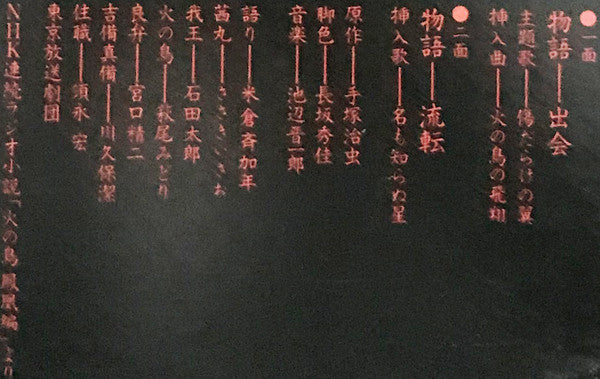 ●一面
物語━出会
主題歌━傷だらけの翼
挿入曲━火の鳥の飛翔
●二面
物語━流転
挿入歌━名も知らぬ星
原作━手塚治虫
脚色━長坂秀佳
音楽━池辺晋一郎
語り━米倉斉加年
茜丸━ささきいさお
我王━石田太郎
火の鳥━萩尾みどり
良弁━宮口精二
吉備真備━川久保潔
住職━須永 宏
東京放送劇団
NHK連続ラジオ小説「火の鳥 鳳凰編」より